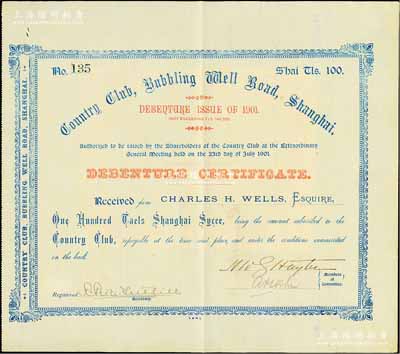 No. 135
Shai Tls. 100.
Country Club, Bubbling Well Road, Shanghai.
DEBENTURE ISSUE OF 1901.
Authorized to be raised by the Shareholders of the Country Club at the Extraordinary
General Meeting held on the 23rd day of July 1901.
DEBENTURE CERTIFICATE.
Received from CHARLES H. WELLS, ESQUIRE,
One Hundred Taels Shanghai Sycee, being the amount subscribed to the
Country Club, repayable at the time and place and under the conditions enumerated
on the back.
Registered
Secretary.
Members
of
Committee
COUNTRY CLUB, BUBBLING WELL ROAD, SHANGHAI